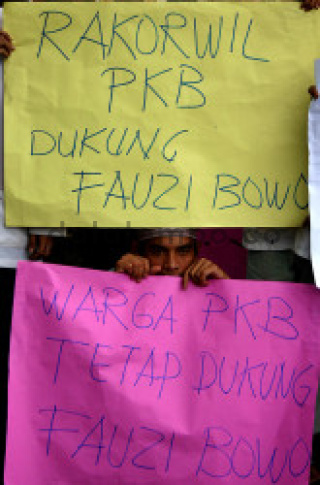 RAKORWIL
PKB
DUKUNG
FAUZI BOWO
WARGA PKB
TETAP DUKUNG
FAUZI BOWO